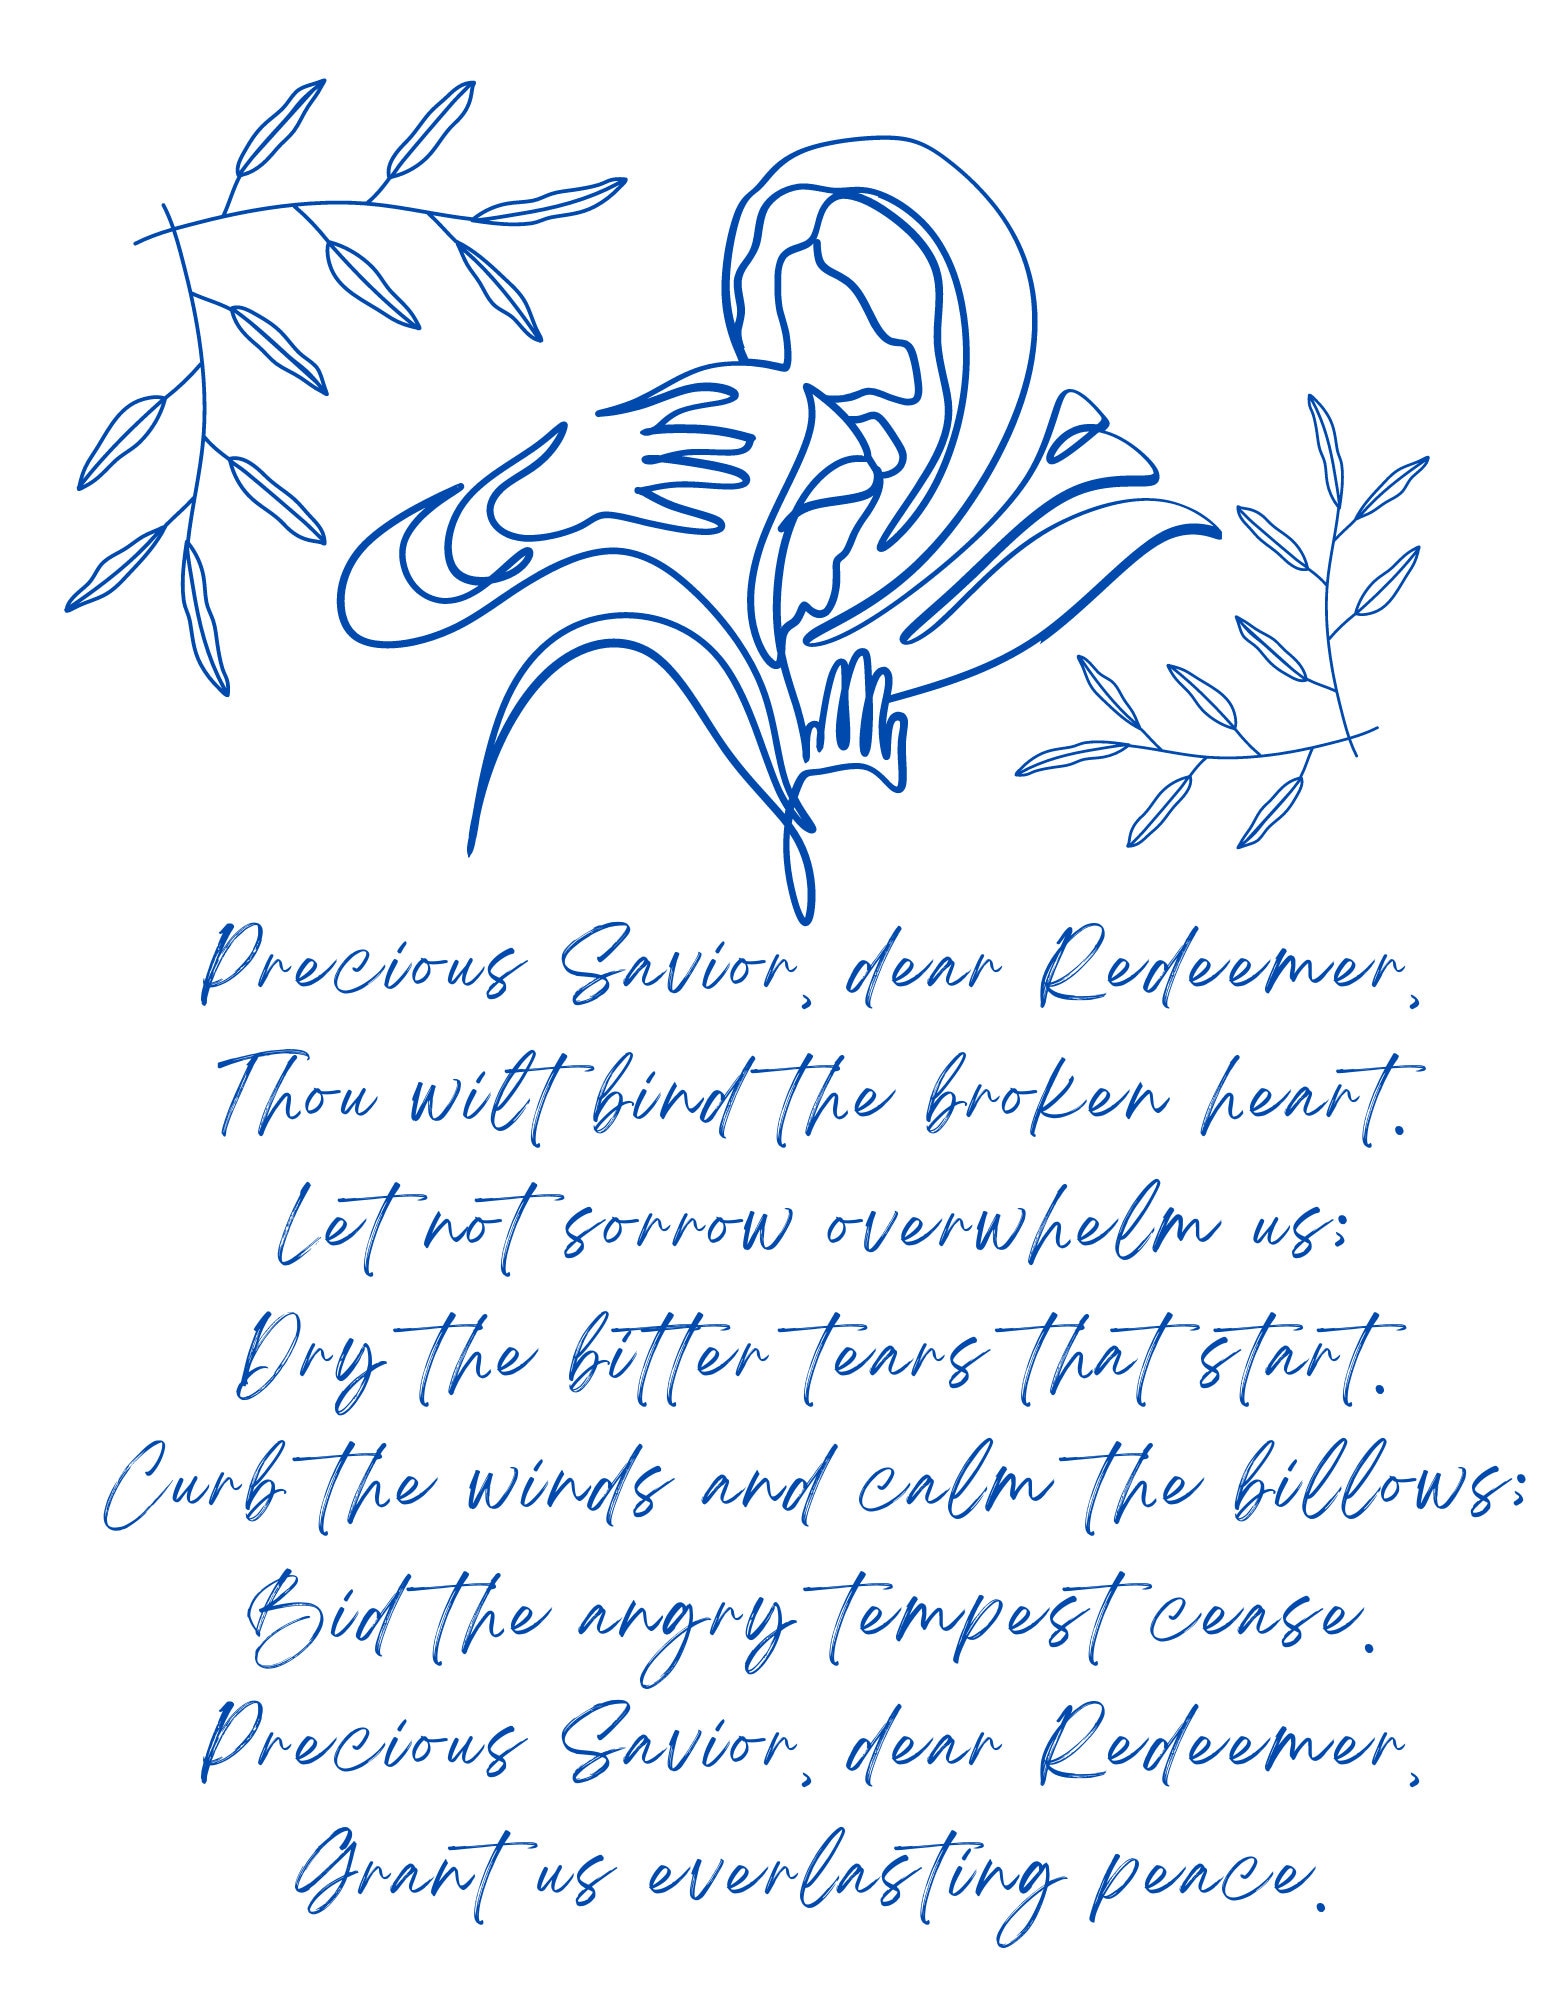 Precious Savior, dear Redeemer,
Thou wilt bind the broken heart.
Let not sorrow overwhelm us;
Dry the bitter tears that start.
Curb the winds and calm the billows;
Bid the angry tempest cease.
Precious Savior, dear Redeemer,
Grant us everlasting peace.